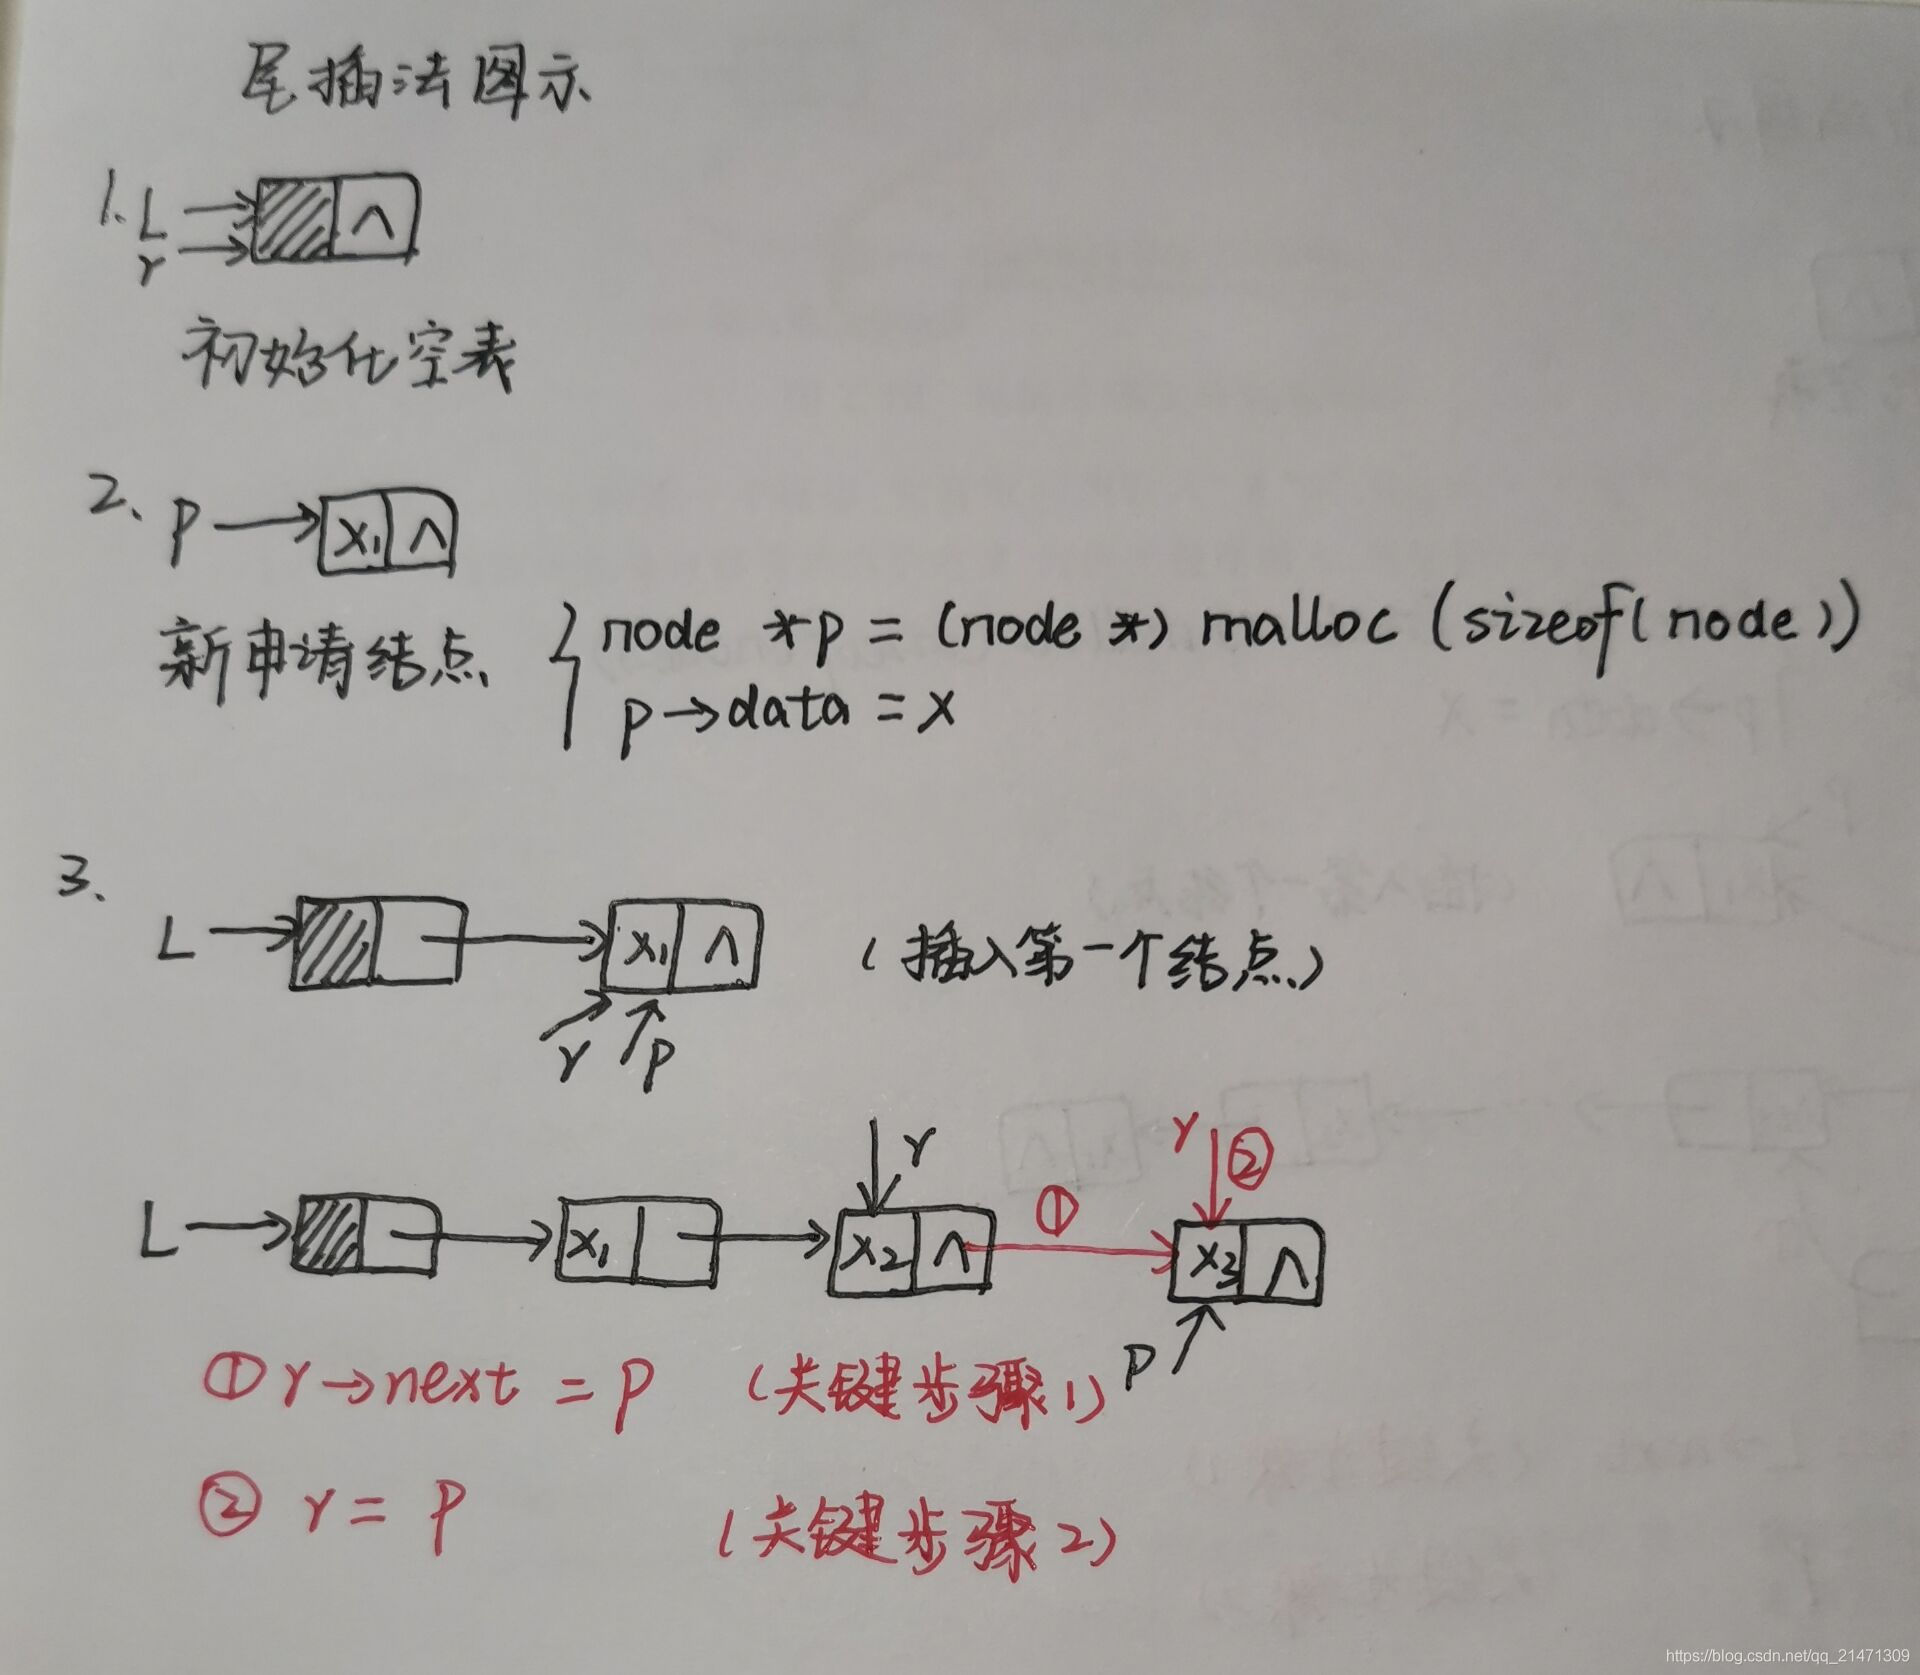 尾插法图示
1. L
r
∧
初始化空表
2、 p
x₁ ∧
新申请结点
node *p = (node *) malloc (sizeof(node))
p→data = x
3、
L
x₁ ∧
(插入第一个结点)
r p
r
r ②
L
x₁
x₂ ∧
①
x₃ ∧
p
① r→next = p (关键步骤1)
② r = p (关键步骤2)
https://blog.csdn.net/qq_21471309